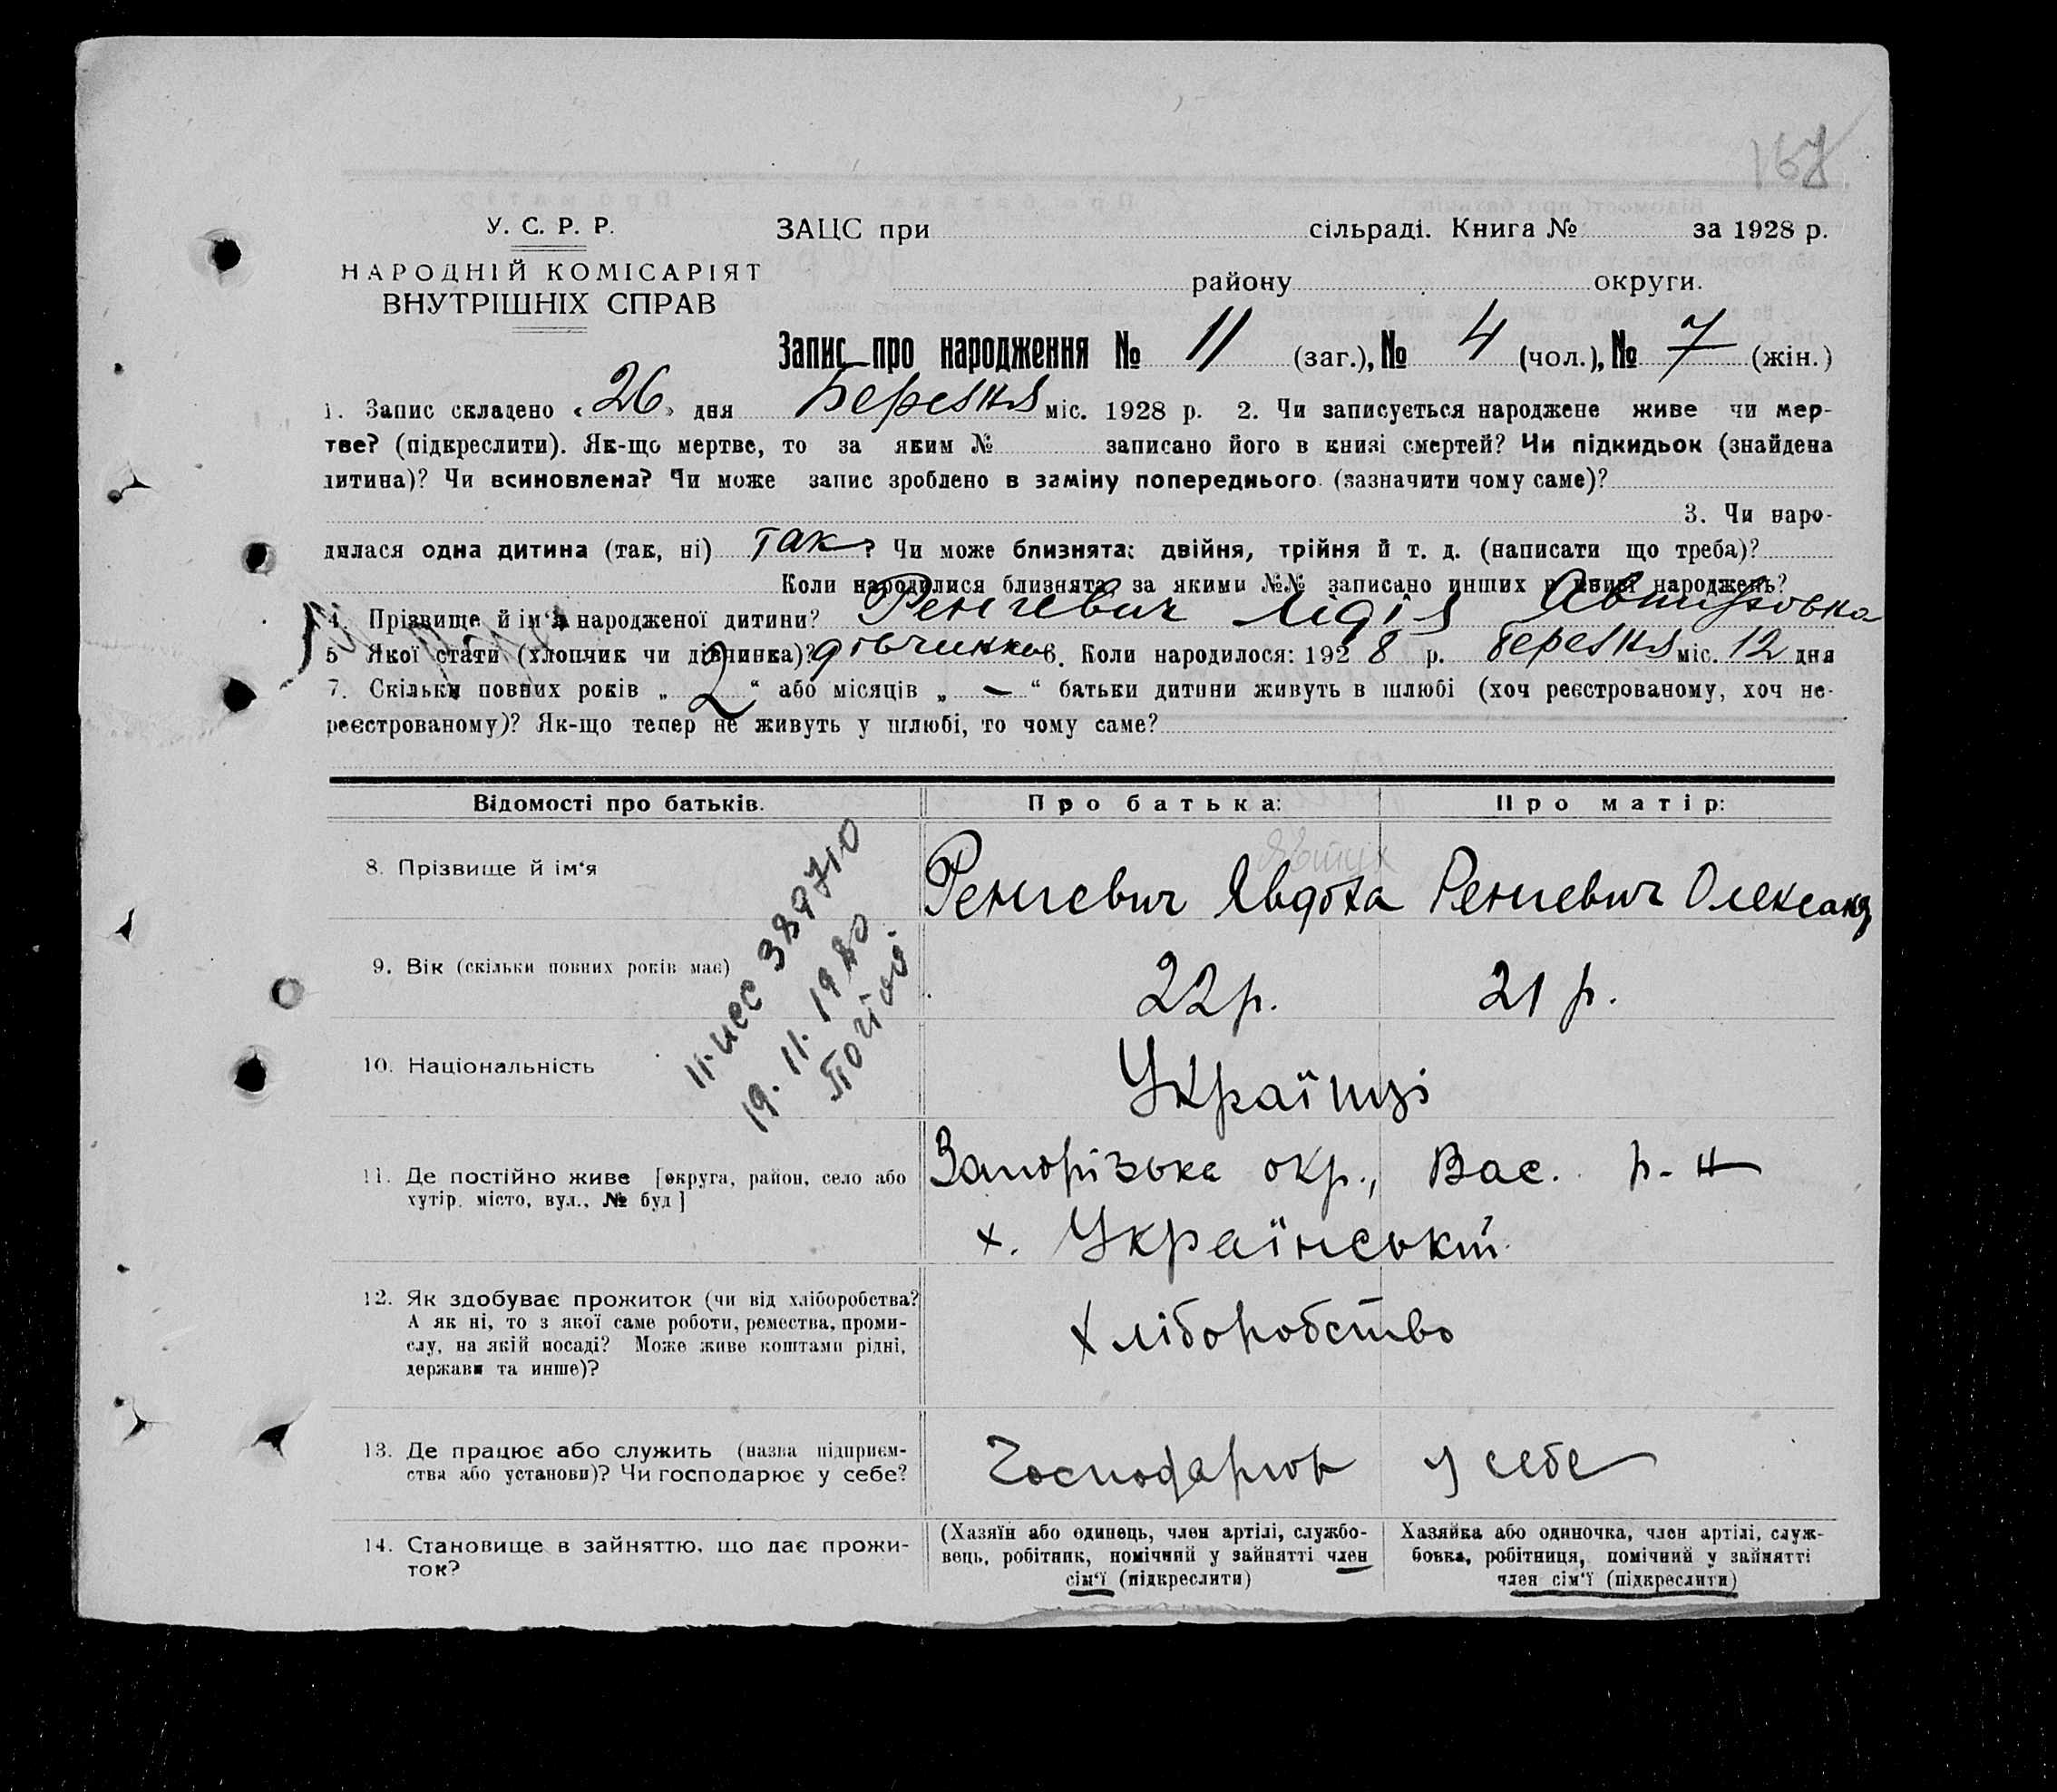 168
У. С. Р. Р.
НАРОДНІЙ КОМІСАРІЯТ
ВНУТРІШНІХ СПРАВ
ЗАЦС при сільраді. Книга № за 1928 р.
району округи.
Запис про народження № 11 (заг.), № 4 (чол.), № 7 (жін.)
1. Запис складено «26» дня Березня міс. 1928 р. 2. Чи записується народжене живе чи мер-
тве? (підкреслити). Як-що мертве, то за яким № записано його в книзі смертей? Чи підкидьок (знайдена
дитина)? Чи всиновлена? Чи може запис зроблено в заміну попереднього (зазначити чому саме)?
3. Чи наро-
дилася одна дитина (так, ні) так? Чи може близнята: двійня, трійня й т. д. (написати що треба)?
Коли народилися близнята, за якими №№ записано инших в книзі народжень?
4. Прізвище й ім'я народженої дитини? Ренгевич Лідія
5 Якої стати (хлопчик чи дівчинка)? дівчинка 6. Коли народилося: 1928 р. березня міс. 12 дня
7. Скільки повних років „ 2 “ або місяців „ — “ батьки дитини живуть в шлюбі (хоч реєстрованому, хоч не-
реєстрованому)? Як-що тепер не живуть у шлюбі, то чому саме?
Відомості про батьків. Про батька: Про матір:
8. Прізвище й ім'я
Явтух
Ренгевич Явдоха Ренгевич Олександ
9. Вік (скільки повних років має) 22 р. 21 р.
10. Національність Українці
389710
19. 11. 1980
11. Де постійно живе [округа, район, село або
хутір, місто, вул., № буд]
Запорізька окр., Вас. р-н
х. Український
12. Як здобуває прожиток (чи від хліборобства?
А як ні, то з якої саме роботи, ремества, проми-
слу, на якій посаді? Може живе коштами рідні,
держави та инше)?
Хліборобство
13. Де працює або служить (назва підприєм-
ства або установи)? Чи господарює у себе?
Господарює у себе
14. Становище в зайняттю, що дає прожи-
ток?
(Хазяїн або одинець, член артілі, службо-
вець, робітник, помічний у зайнятті член
сім'ї (підкреслити)
Хазяйка або одиночка, член артілі, служ-
бовка, робітниця, помічний у зайнятті
член сім'ї (підкреслити)